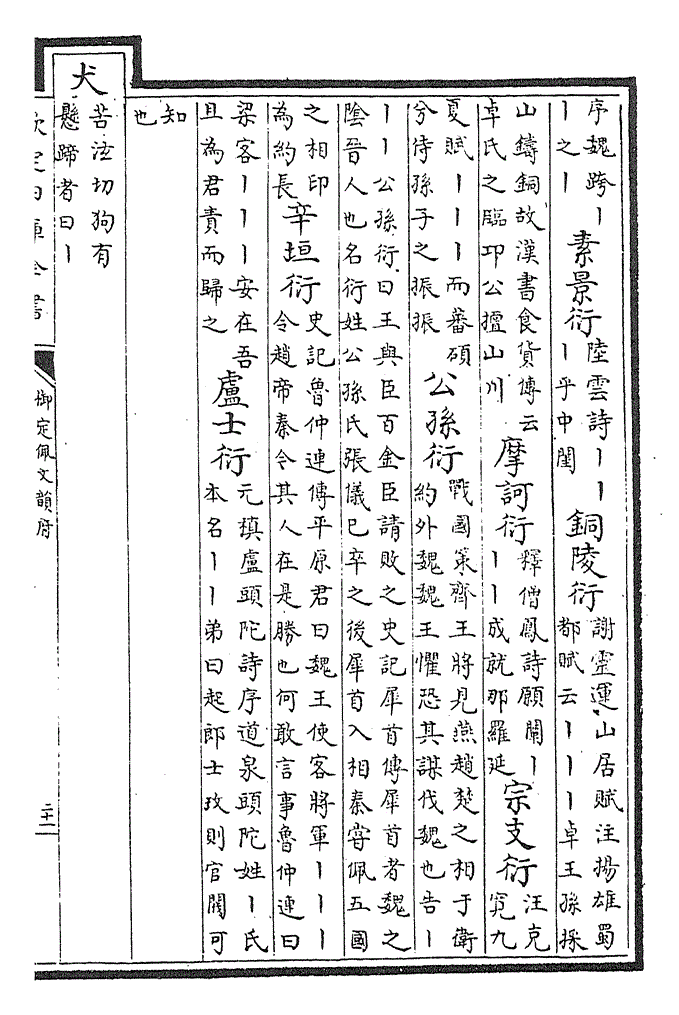 序魏跨丨
丨之丨
素景衍
陸雲詩丨丨
丨乎中閨
銅陵衍
謝靈運山居賦注揚雄蜀
都賦云丨丨丨卓王孫採
山鑄銅故漢書食貨傳云
卓氏之臨卭公擅山川
摩訶衍
釋僧鳳詩願闡丨
丨丨成就那羅延
宗支衍
汪克
寛九
夏賦丨丨丨而蕃碩
兮侍孫子之振振
公孫衍
戰國策齊王將見燕趙楚之相于衛
約外魏魏王懼恐其謀伐魏也告丨
丨丨公孫衍曰王與臣百金臣請敗之史記犀首傳犀首者魏之
陰晉人也名衍姓公孫氏張儀已卒之後犀首入相秦嘗佩五國
之相印
為約長
辛垣衍
史記魯仲連傳平原君曰魏王使客將軍丨丨丨
令趙帝秦今其人在是勝也何敢言事魯仲連曰
梁客丨丨丨安在吾
且為君責而歸之
盧士衍
元稹盧頭陀詩序道泉頭陀姓丨氏
本名丨丨弟曰起郎士玫則官閥可
知
也
犬
苦泫切狗有
懸蹄者曰丨
欽定四庫全書
御定佩文韻府
二十一